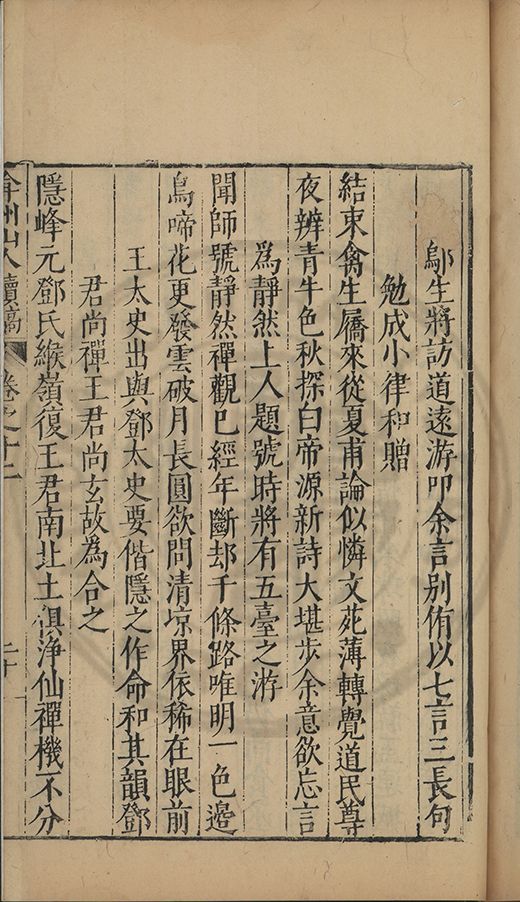 鄔生將訪道遠游叩余言别侑以七言三長句
勉成小律和贈
結束禽生屩來從夏甫論似憐文苑薄轉覺道民尊
夜辨青牛色秋探白帝源新詩大堪步余意欲忘言
爲靜然上人題號時將有五臺之游
聞師號靜然禪觀巳經年斷却千條路唯明一色邉
鳥啼花更發雲破月長圓欲問清凉界依稀在眼前
王太史出與鄧太史要偕隱之作命和其韻鄧
君尚禪王君尚玄故爲合之
隱峰元鄧氏緱嶺復王君南北土俱浄仙禪機不分
弇州山人續稿 卷之十二 二十